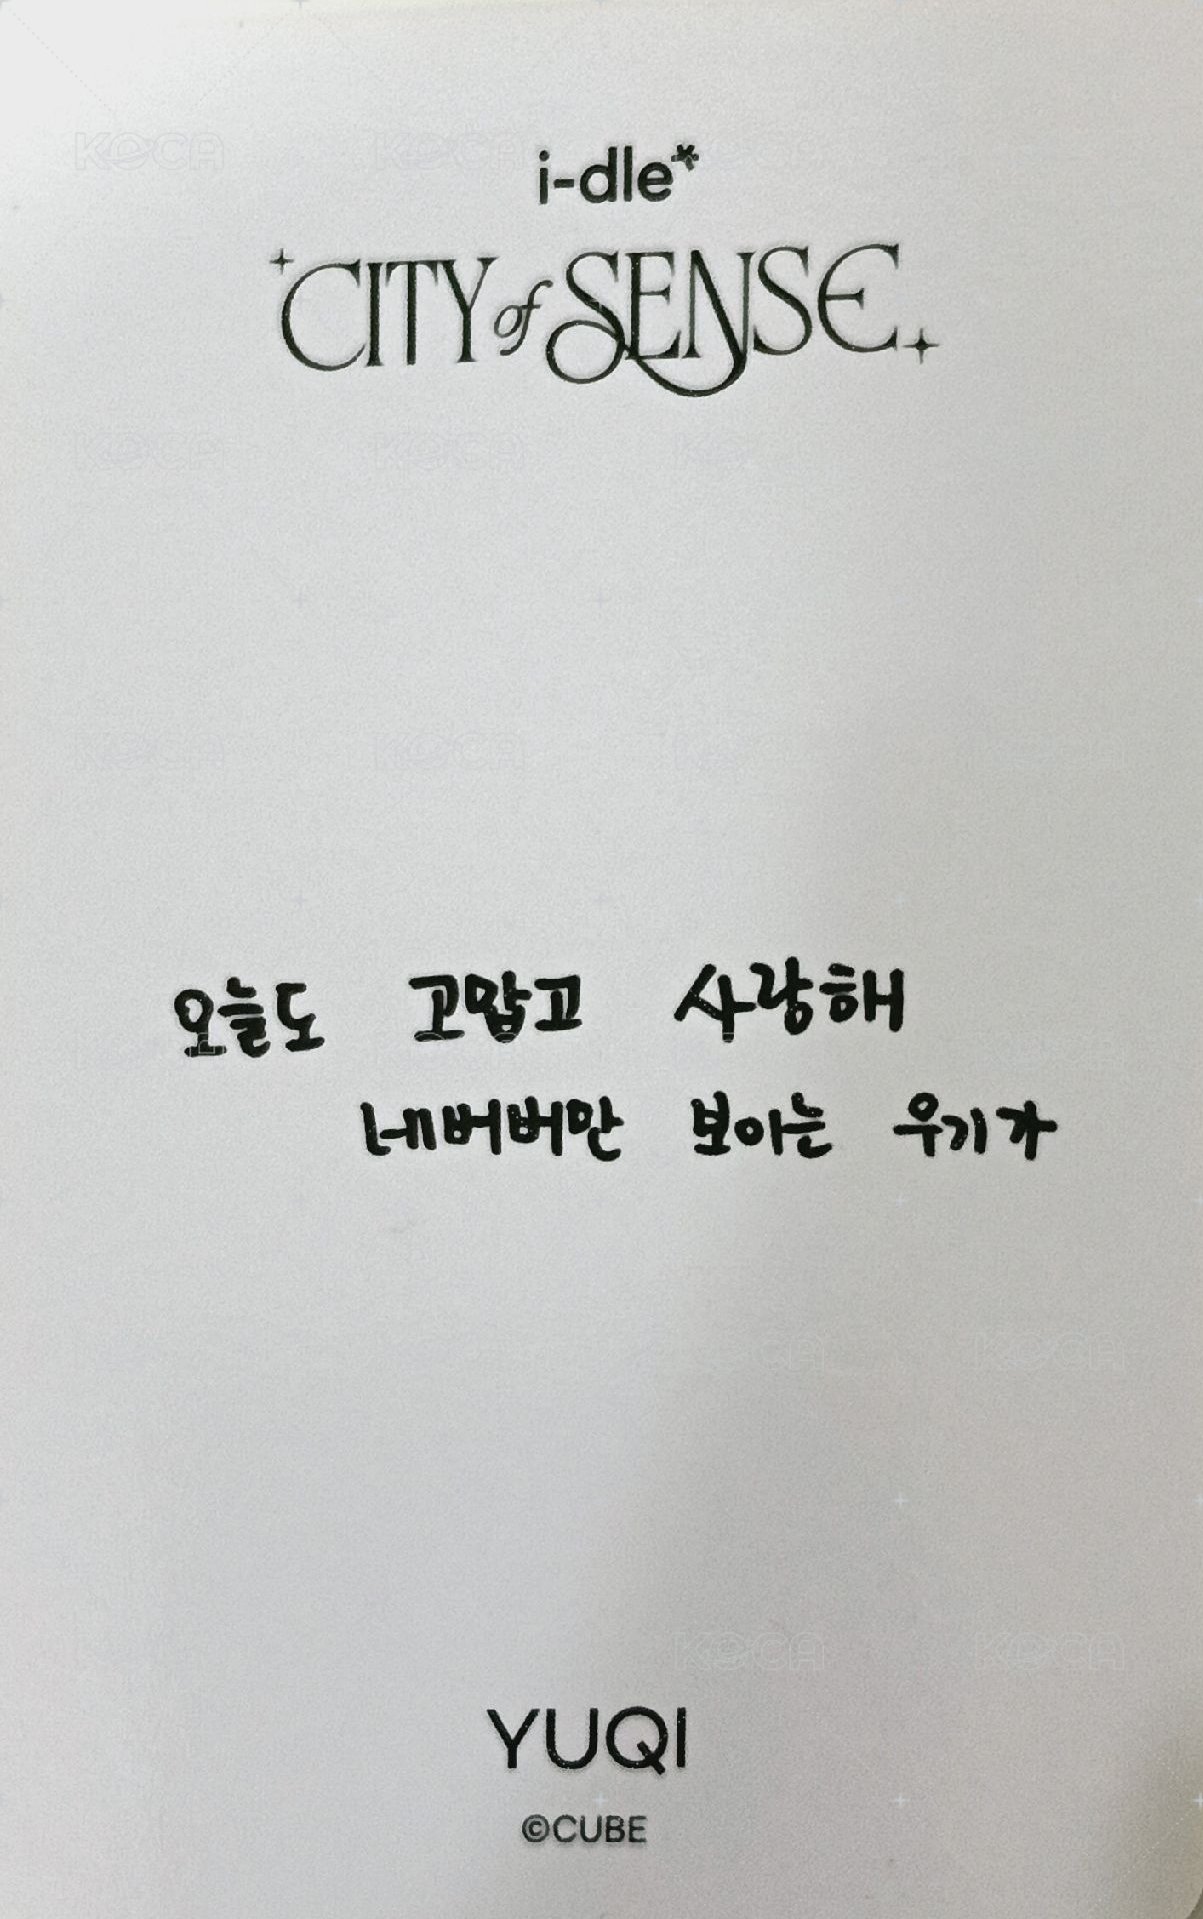 i-dle*
CITY of SENSE
오늘도 고맙고 사랑해
네버버만 보아는 우기가
YUQI
©CUBE
KOCA